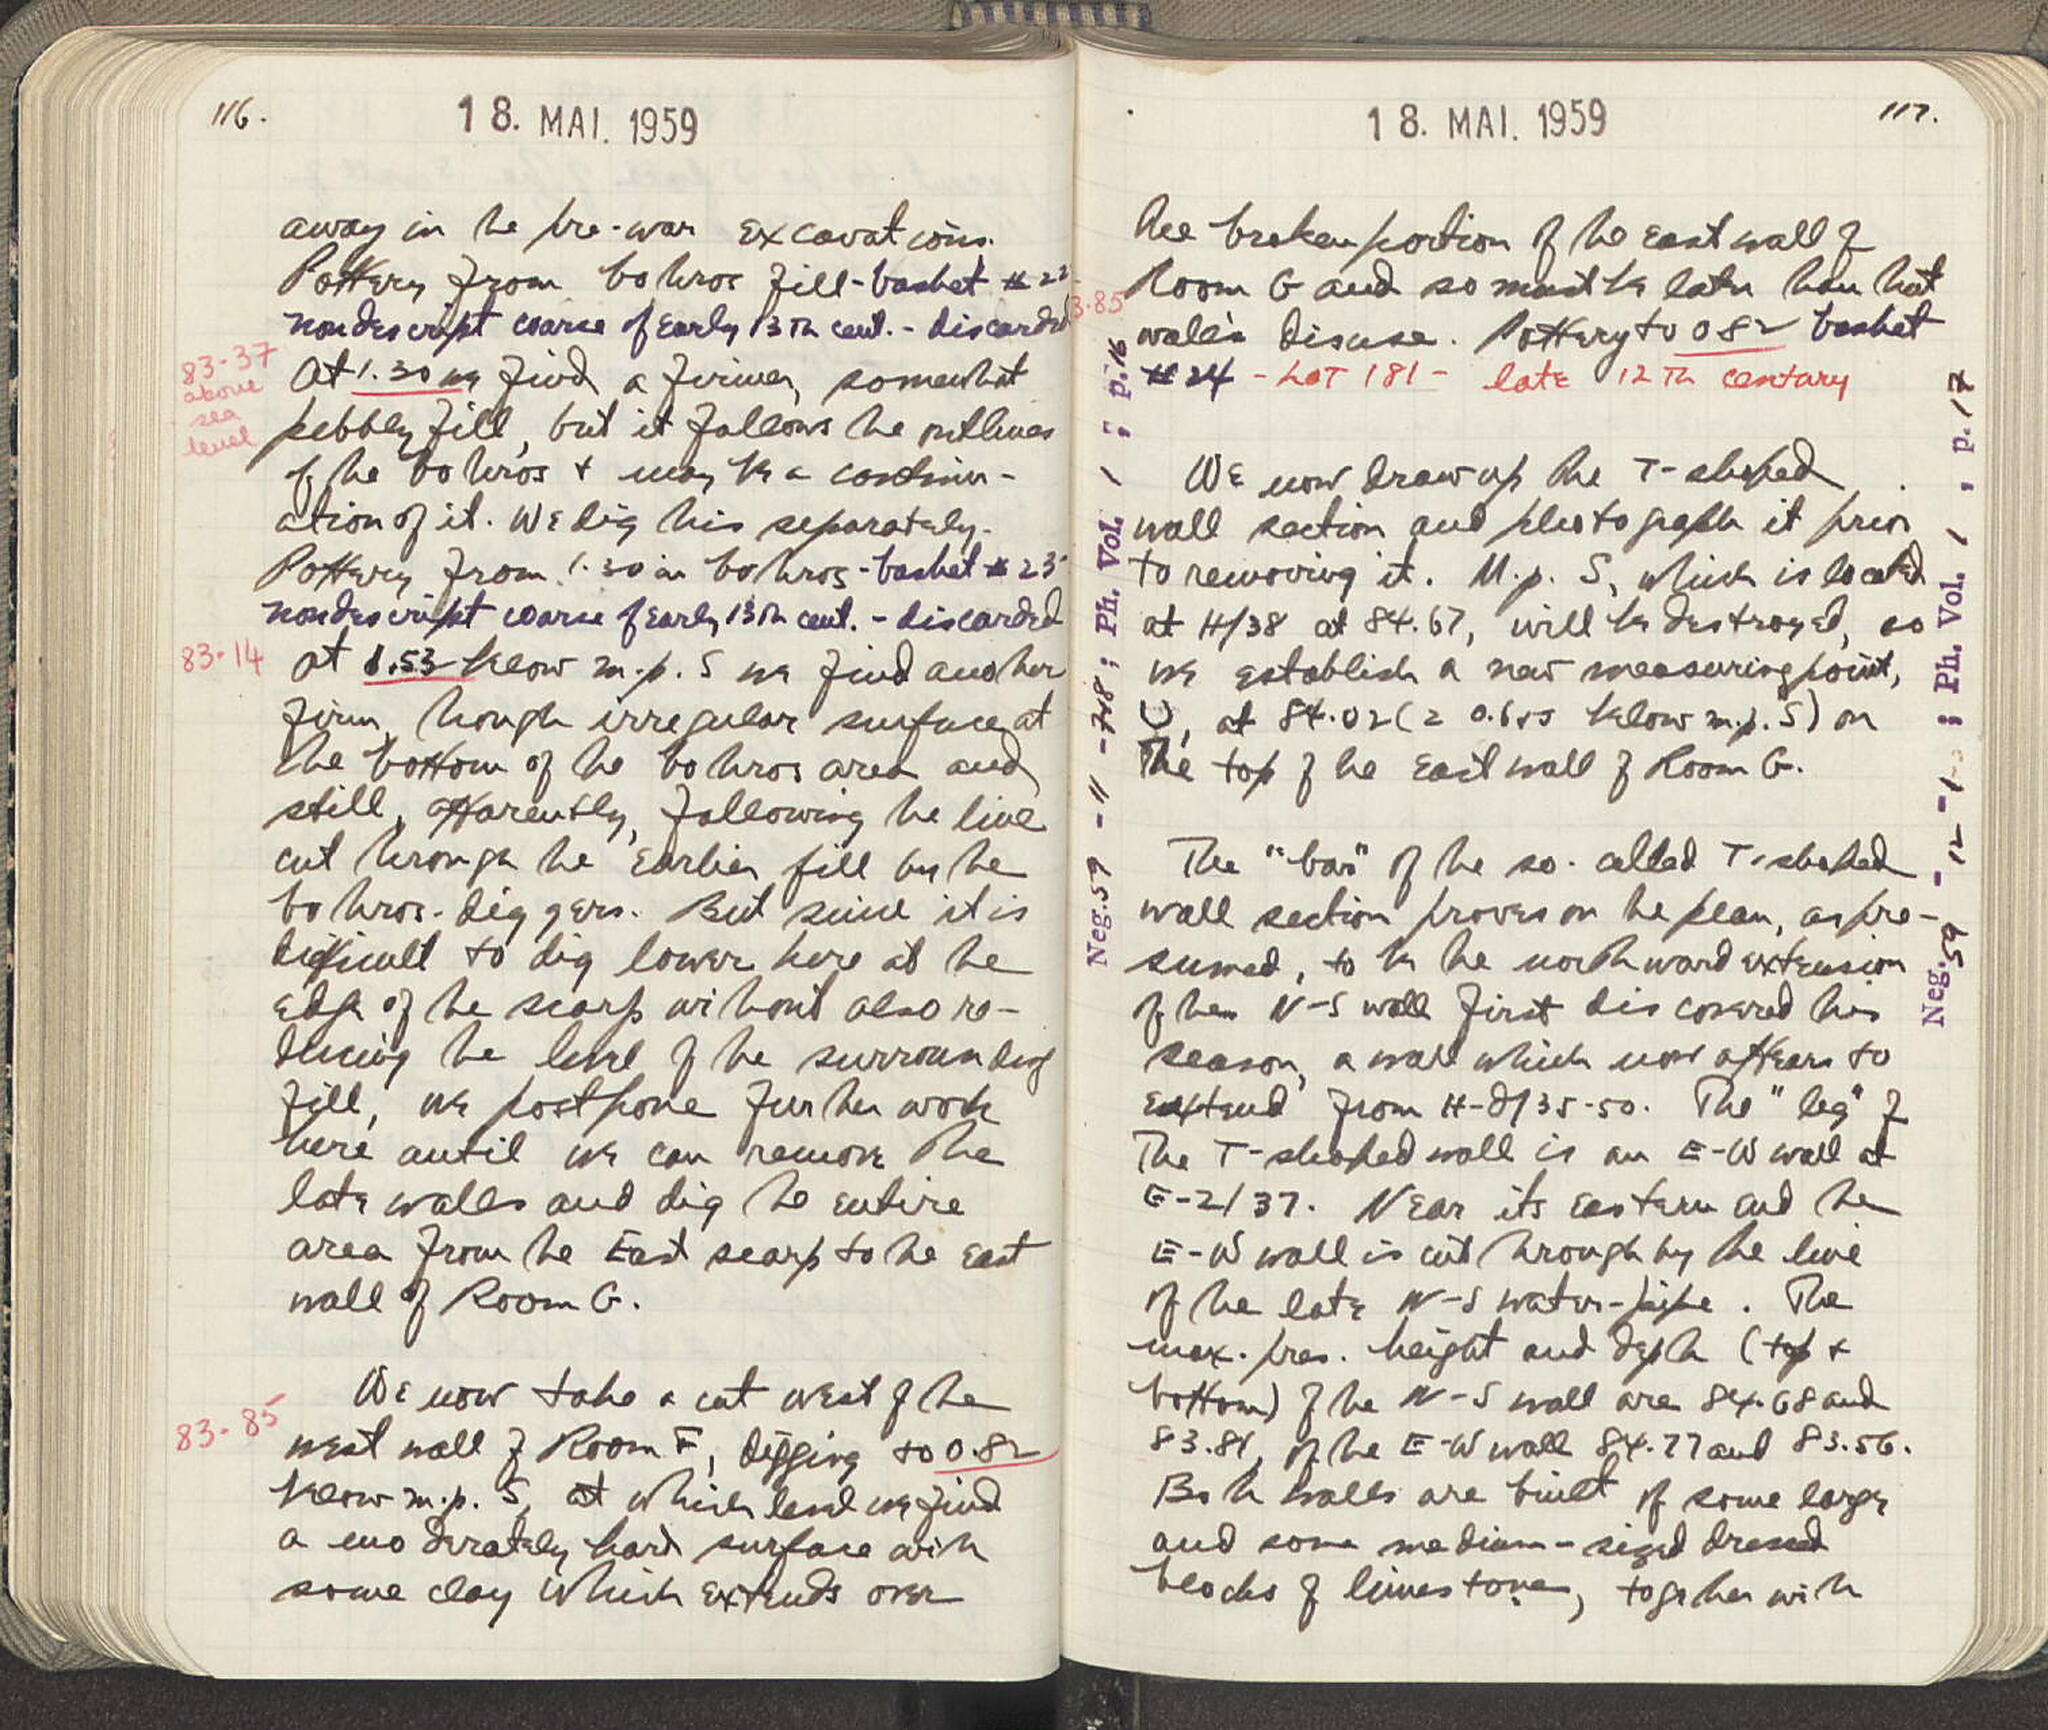 116.
18. MAI. 1959
away in the pre-war excavations.
Pottery from bothros fill - basket # 22
nondescript coarse of early 13th cent. - discarded
83.37
above
sea
level
At 1.30 we find a firmer, somewhat
pebbly fill, but it follows the outlines
of the bothros + may be a continu-
ation of it. We dig this separately.
Pottery from 1.30 in bothros - basket # 23
nondescript coarse of early 13th cent. - discarded
83.14
at 1.53 below m.p. S we find another
firm, though irregular surface at
the bottom of the bothros area and
still, apparently, following the line
cut through the earlier fill by the
bothros-diggers. But since it is
difficult to dig lower here at the
edge of the scarp without also re-
ducing the level of the surrounding
fill, we postpone further work
here until we can remove the
late walls and dig the entire
area from the East scarp to the east
wall of Room G.
We now take a cut west of the
83.85
west wall of Room F, digging to 0.82
below m.p. S, at which level we find
a moderately hard surface with
some clay which extends over
18. MAI. 1959
117.
the broken portion of the east wall of
Room G and so must be later than that
83.85
wall's disuse. Pottery to 082 basket
# 24 - LOT 181 - late 12th century
We now draw up the T-shaped
wall section and photograph it prior
to removing it. M.p. S, which is located
at H/38 at 84.67, will be destroyed, so
we establish a new measuring point,
U, at 84.02 (= 0.655 below m.p. S) on
the top of the east wall of Room G.
The "bar" of the so-called T-shaped
wall section proves on the plan, as pre-
sumed, to be the northward extension
of the N-S wall first discovered this
season, a wall which now appears to
extend from H-J/35-50. The "leg" of
the T-shaped wall is an E-W wall at
E-2/37. Near its eastern end the
E-W wall is cut through by the line
of the late N-S water-pipe. The
max. pres. height and depth (top +
bottom) of the N-S wall are 84.68 and
83.81, of the E-W wall 84.77 and 83.56.
Both walls are built of some large
and some medium-sized dressed
blocks of limestone, together with
Neg. 59 - 11 - 7+8 ; Ph. Vol. 1 ; p. 16
Neg. 59 - 12 - 1 ; Ph. Vol. 1 , p. 17